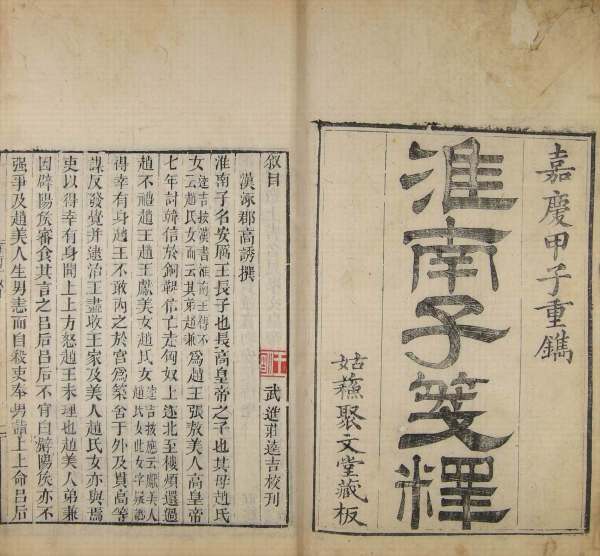 嘉慶甲子重鐫
淮南子箋釋
姑蘓聚文堂藏板
叙目
漢涿郡高誘撰 武進莊逵吉校刊
淮南子名安厲王長子也長高皇帝之子也其母趙氏
女逵吉按漢書淮南王傳不云趙氏女而云其弟趙兼為趙王張敖美人高皇帝
七年討韓信於銅鞮信亡走匈奴上遂北至樓煩還過
趙不禮趙王趙王獻美女趙氏女逵吉按應云獻美人趙氏女此女字疑譌
得幸有身趙王不敢内之於宮為築舍于外及貫高等
謀反發覺并逮治王盡收王家及美人趙氏女亦與焉
吏以得幸有身聞上上方怒趙王未理也趙美人弟兼
因辟陽侯審食其言之吕后吕后不肯白辟陽侯亦不
强爭及趙美人生男恚而自殺吏奉男詣上上命吕后